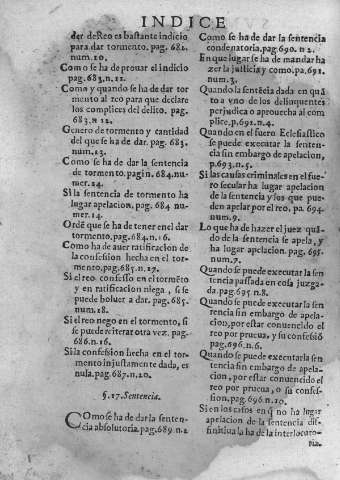 INDICE
der deReo es bastante indicio
para dar tormento. pag. 682.
num.10.
Como se ha de prouar el indicio
pag.683.n.11.
Como y quando se ha de dar tor
mento al reo para que declare
los complices del delito. pag.
683.n 12.
Genero de tormento y cantidad
del que se ha de dar. pag. 683.
num.13.
Como se ha de dar la sentencia
de tormento. pagin. 684.nu-
mer.14.
Si la sentencia de tormento ha
lugar apelacion, pag. 684 nu-
mer.14.
Ordē que se ha de tener en el dar
tormento.pag.684.n.16.
Como ha de auer ratificacion de
la confession hecha en el tor-
mento,pag.685.n.17.
Si el reo confesso en tormēto
y en ratificacion niega, si se
puede boluer a dar. pag. 685.
num.18.
Si el reo nego en el tormento, si
se puede reiterar otra vez. pag.
686.n.16.
Si la confession hecha en el tor-
mento injustamente dada, es
nula.pag.687.n.20.
§.17.Sentencia.
COmo se ha de dar la senten-
cia absolutoria.pag.689 n.2
Como se ha de dar la sentencia
condenatoria.pag.690. n 2.
En que lugar se ha de mandar ha
zer la justicia y como.pa.691.
num.3.
Quando la sentēcia dada en quā
to a vno de los delinquentes
perjudica o aprouecha al com
plice.p.691.n.4.
Quando en el fuero Eclesiastico
se puede executar la senten-
cia sin embargo de apelacion,
p.693.n.5.
Si las causas criminales en el fue-
ro secular ha lugar apelacion
de la sentencia y los que pue-
den apelar por el reo. pa. 694.
num.9.
Lo que ha de hazer el juez quā-
do de la sentencia se apela, y
ha lugar apelacion. pag. 695.
num.7.
Quando se puede executar la sen
tencia passada en cosa juzga-
da.pag.695 n.8.
Quando se puede executar la sen-
rencia sin embargo de apela-
cion,por estar conuencido el
reo por prueua, y su confessiō
pag.696.n.6.
Quando se puede executarla sen
tencia sin embargo de apela-
cion, por estar conuencido el
reo por prueua, o su confes-
sion.pag.696.n.10.
Si en los casos en q̄ no ha lugar
apelacion de la sentencia dif-
finitiua la ha de la interlocuto-
ria.